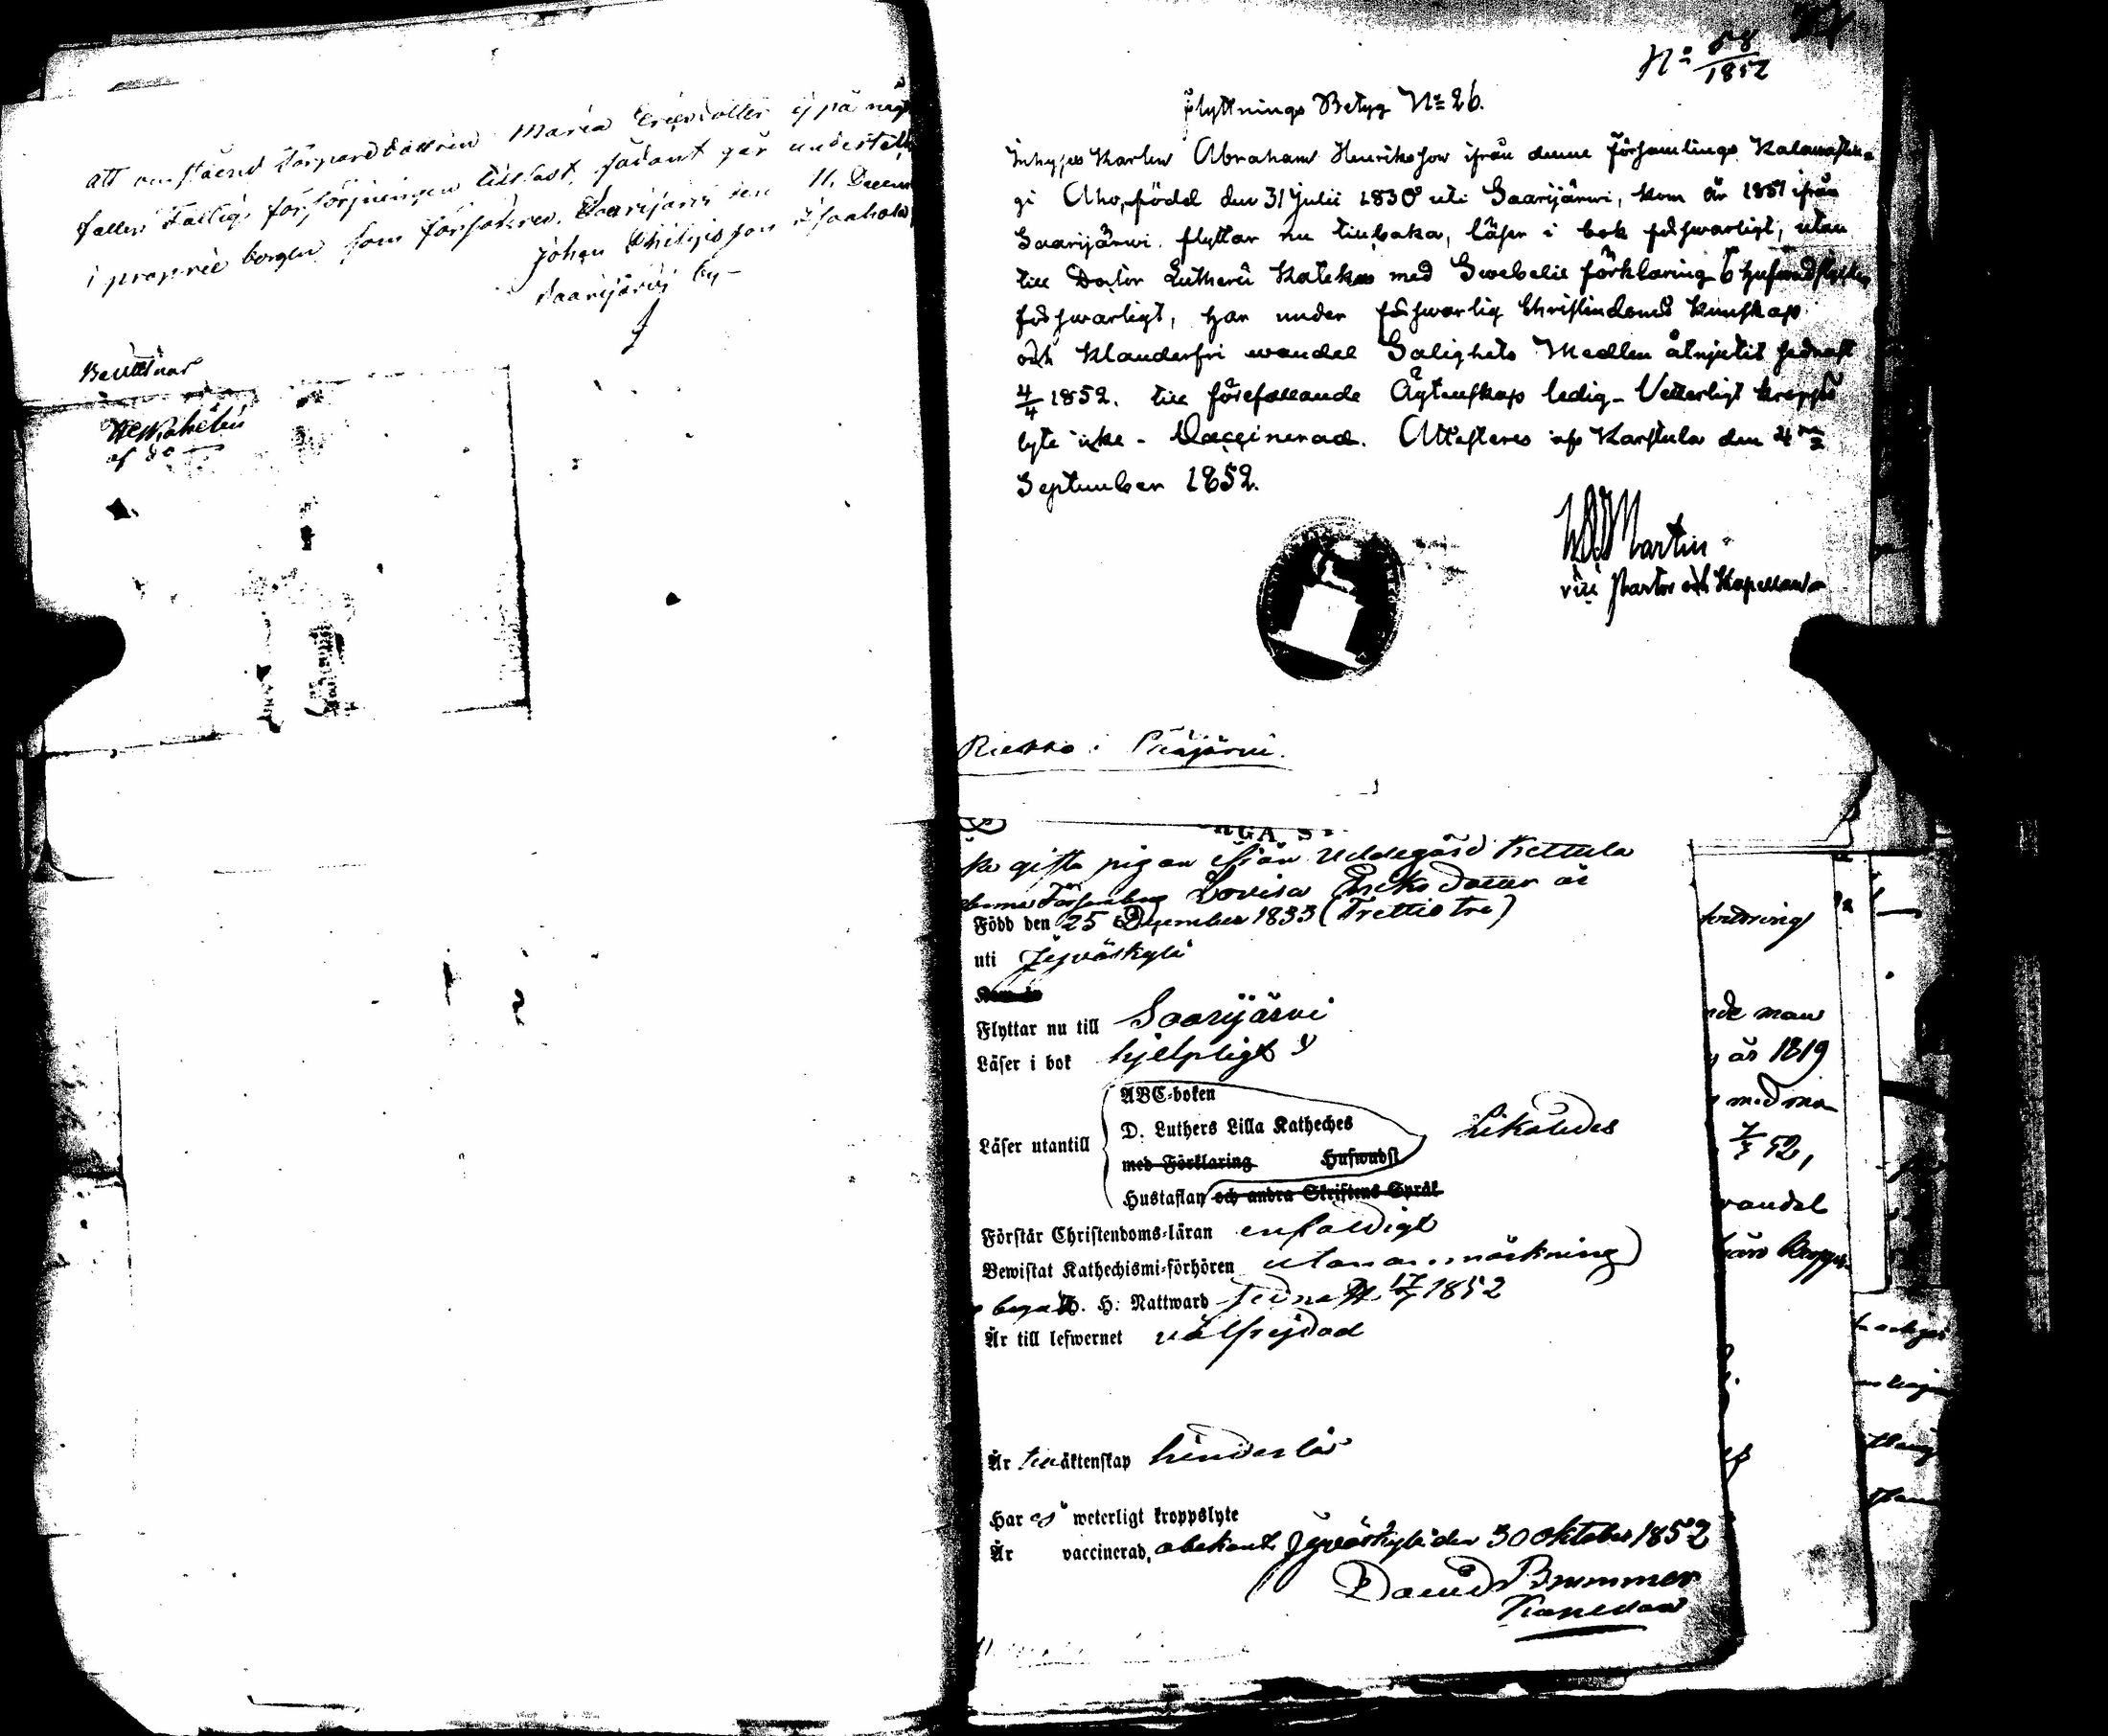 att omstående Torpare dottren Maria Ericsdotter ej på någ
faller Fattig försörjningen till last, sådant går undertekn
i proprie borgen som försäkras. Saarijärvi den 11. Decem
Johan Philipsson Isoahola
Saarijärvi by
Bevittnar
af do
No 58/1852
Flyttnings Betyg No 26.
Inhyses Karlen Abraham Henriksson ifrån denne Församlings
gi Aho, född den 31 Julii 1830 uti Saarijärwi, kom år 1851 ifrån
Saarijärwi, flyttar nu tillbaka, läser i bok förswarligt, utan
till Doctor Lutheri Kateches med Swebelii förklaring
förswarligt, har under förswarlig Christendoms Kunskap
och Klanderfri wandel Salighets Medlen åtnjutit sednast
4/4 1852. till förefallande Ägtenskap ledig – Vetterligt kropps
lyte icke – Vaccinerad. Attesteras af Karstula den 4
September 1852.
Martin
vice Pastor och Kapellan
Riekko i Pääjärvi.
gifta pigan ifrån Uddegård Kettula
Lovisa Ericks dotter är
Född den 25 December 1833 (Trettio tre)
uti Jyväskylä
Flyttar nu till Saarijärvi
Läser i bok hjelpligt
ABC-boken
D. Luthers Lilla Katheches
Läser utantill Likaledes
med Förklaring Hufwudst
Hustaflan och andra Skriftens Språk
Förstår Christendoms-läran enfaldigt
Bewistat Kathechismi-förhören utan anmärkning
begått H. H: Nattward sednast 17/7 1852
Är till lefwernet välfrejdad
Är till äktenskap hinderlös
Har ej weterligt kroppslyte
Är vaccinerad, obekant. Jyväskylä den 30 oktober 1852
David Brummer
Kapellan
nde man
år 1819
7/7 52,
vandel